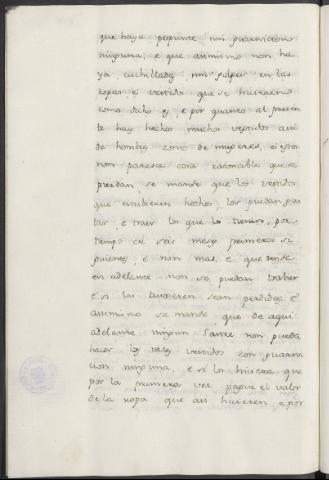 que haya pespunte, nin guarnicion
ninguna, e que asimismo non ha
ya cuchilladas nin golpes en las
ropas, e vestido que se hicieren
como dicho es, e por quanto al presen
te hay hechos muchos vestidos asi
de hombres como de mugeres, e esto
non parece cosa razonable que se
pierdan, se manda que los vestidos
que estubieren hechos, los puedan gas
tar, e traer los que lo tienen, por
tiempo de seis meses primeros si
guientes, e non mas, e que dende
en adelante non se puedan traher
e si los tuvieren sean perdidos, e
asimismo se manda, que de aqui
adelante ningun Sastre non pueda
hacer los tales vestidos con guarni
cion ninguna, e si lo hiciere que
por la primera vez pague el valor
de la ropa que asi hicieren, e por